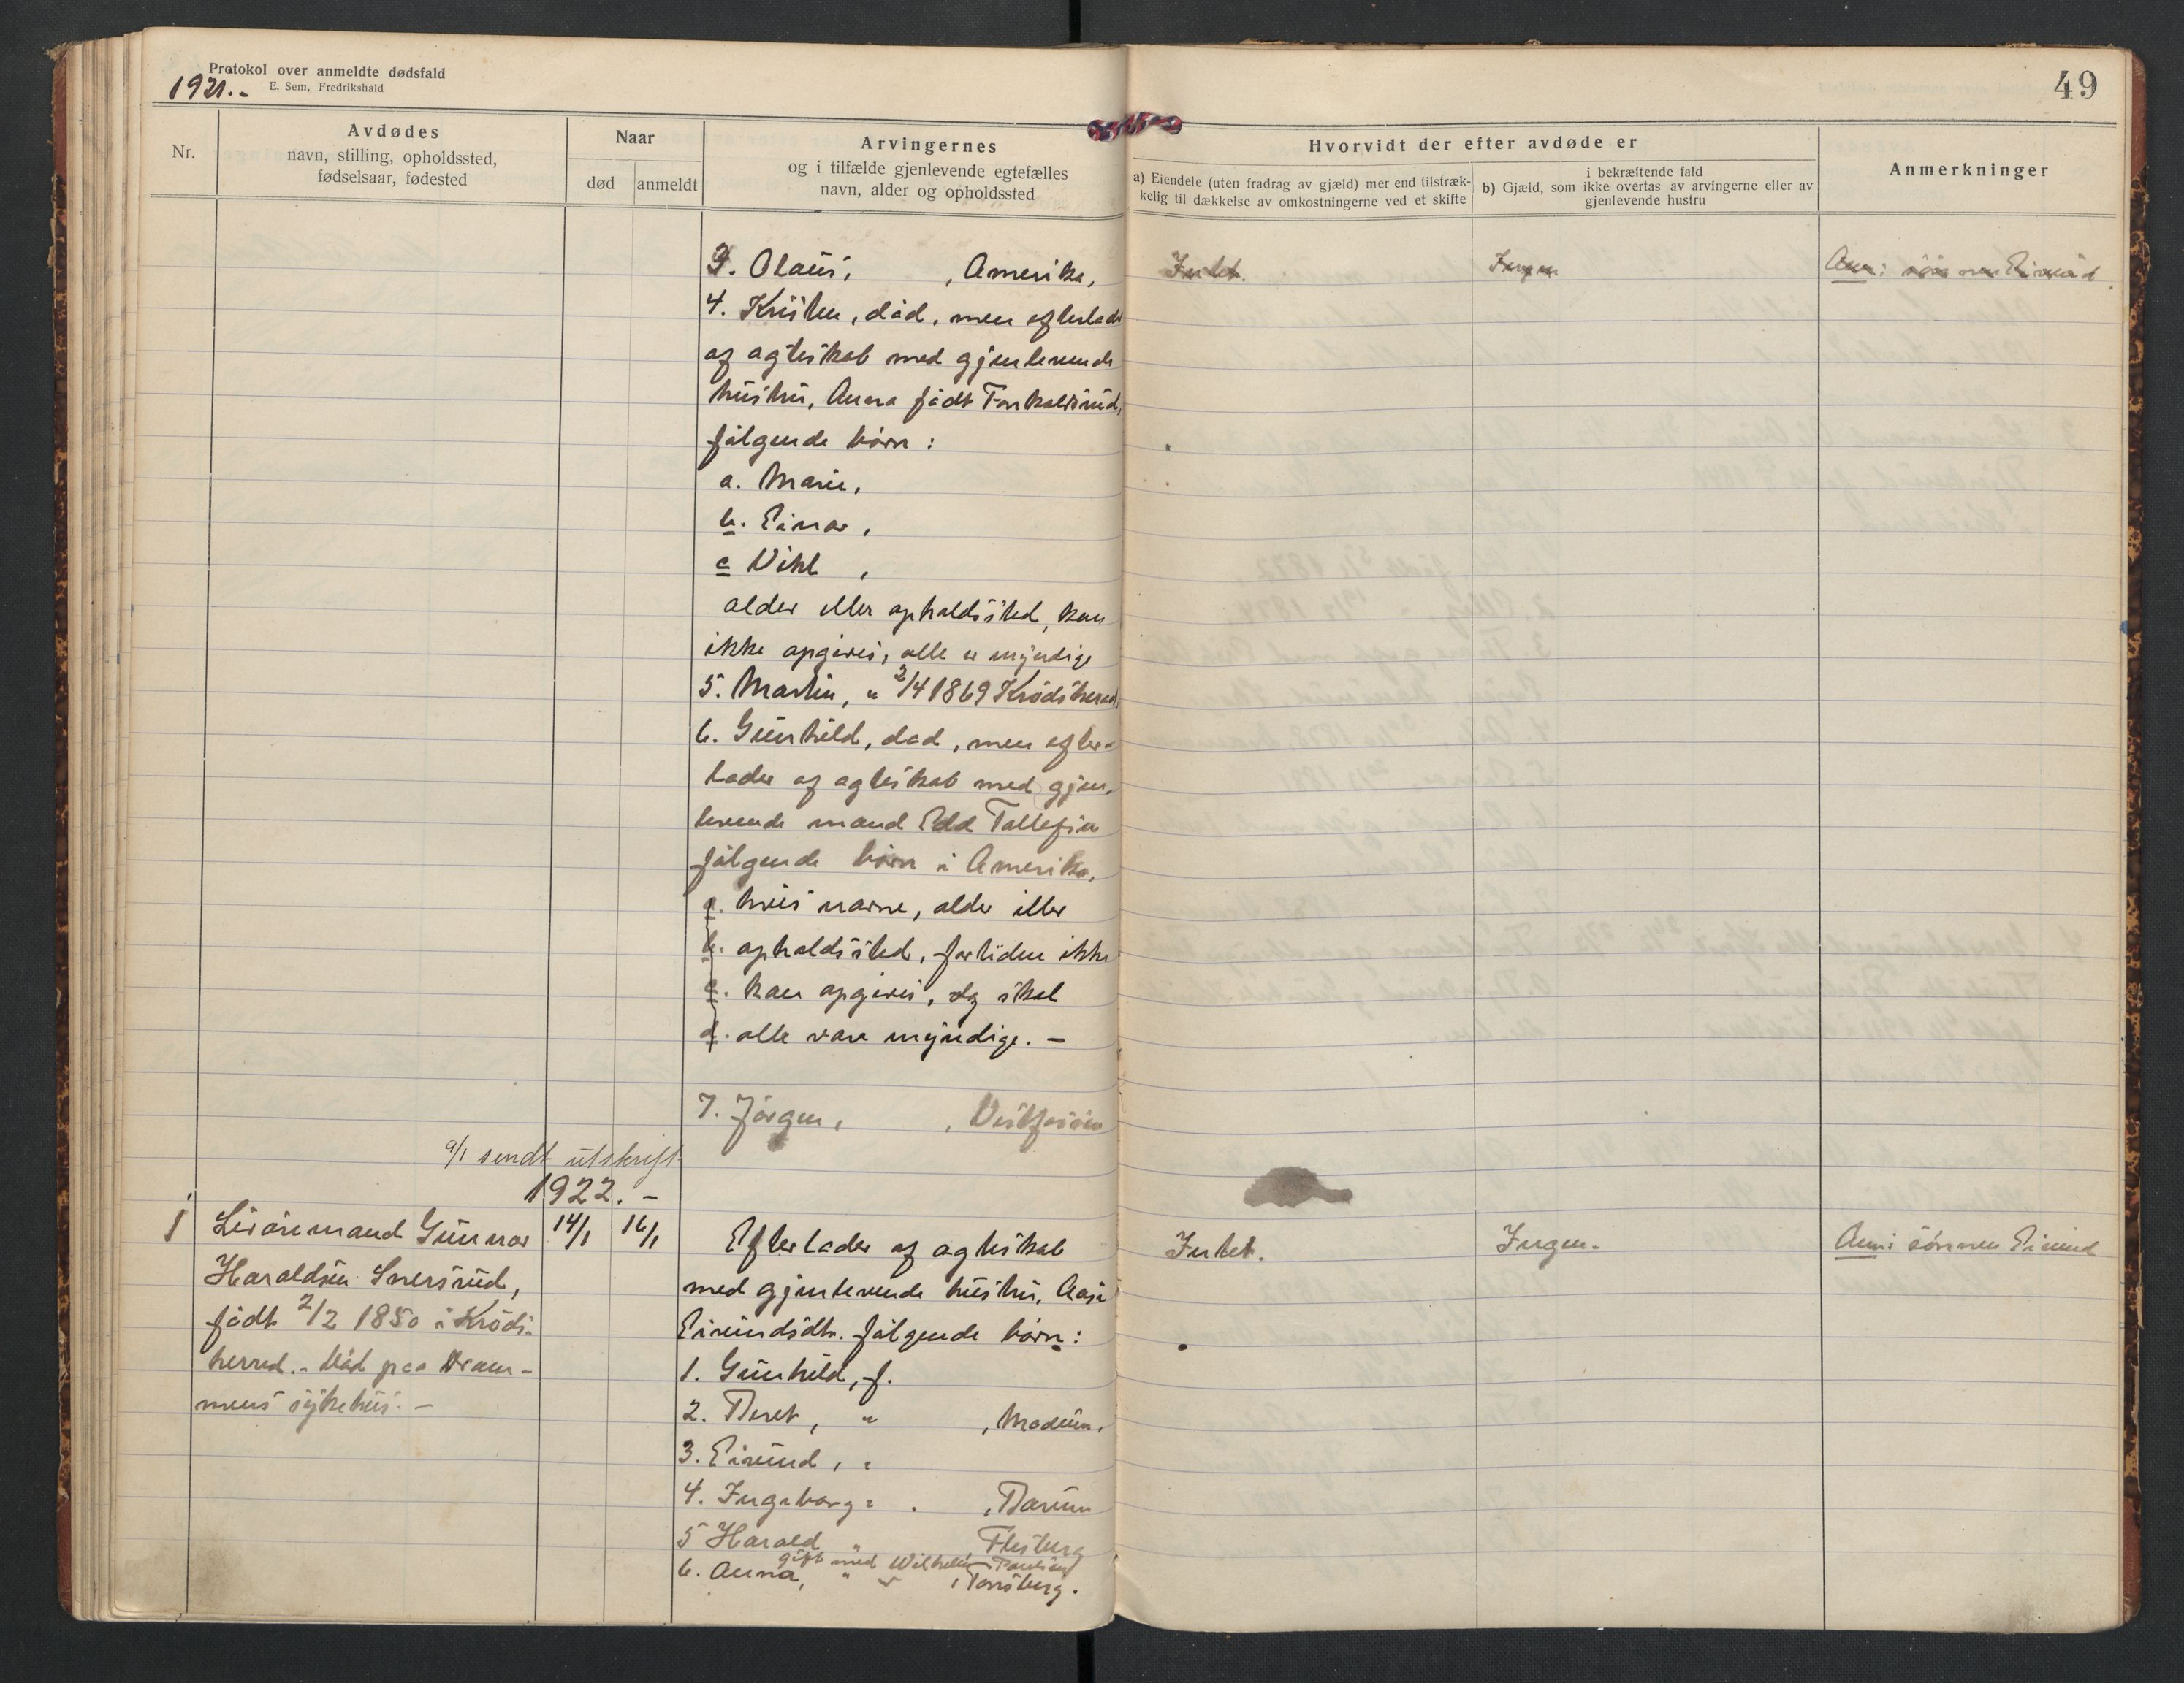 Protokol over anmeldte dødsfald
1921..
E. Sem, Fredrikshald
49
Nr.
Avdødes
navn, stilling, opholdssted,
fødselsaar, fødested
Naar
død
anmeldt
Arvingernes
og i tilfælde gjenlevende egtefælles
navn, alder og opholdssted
Hvorvidt der efter avdøde er
a) Eiendele (uten fradrag av gjæld) mer end tilstræk-
kelig til dækkelse av omkostningerne ved et skifte
i bekræftende fald
b) Gjæld, som ikke overtas av arvingerne eller av
gjenlevende hustru
Anmerkninger
3. Olaus, , Amerika,
Intet.
Ingen
Anm: søn
4. Kristen, død, men efterlader
af ægteskab med gjenlevende
hustru, Anna født
følgende børn:
a. Marie,
b. Einar,
c ,
alder eller opholdssted, kan
ikke opgives, alle er myndige
5. Martin, " 2/4 1869 Krødsherad.
6. Gunhild, død, men efter-
lader af ægteskab med gjen-
levende mand Edd Tollefsen
følgende børn i Amerika,
a. hvis navne, alder eller
b. opholdssted, fortiden ikke
c. kan opgives, og skal
d. alle være myndige. -
7. Jørgen, , Vestfossen
9/1 sendt utskrift
1922. -
1 Livøremand Gunnar
Haraldsen Snersrud,
født 2/2 1850 i Kröds-
herred.. Död paa Dram-
mens sykehus. -
14/1
16/1
Efterlader af ægteskab
med gjenlevende hustru, Aase
Eivindsdtr. følgende børn:
1. Gunhild, f.
2. Beret, " , Modum.
3. Eivind, "
4. Ingeborg " , Bærum
5 Harald " , Flesberg
gift med Wilhelm Paulsen
6. Anna, " , Tønsberg.
Intet.
Ingen.
Anm: sønnen Eivind